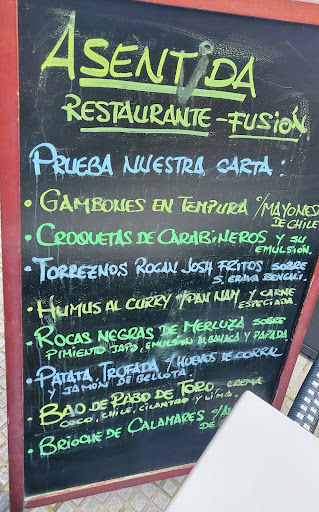 ASENTIDA
RESTAURANTE-FUSIÓN
PRUEBA NUESTRA CARTA:
• GAMBONES EN TEMPURA C/MAYONES
DE CHILE
• CROQUETAS DE CARABINEROS Y SU
EMULSIÓN.
• TORREZNOS ROGAN JOSH FRITOS SOBRE
BENGALI.
• HUMUS AL CURRY C/PAN NAM Y CARNE
ESPECIADA
• ROCAS NEGRAS DE MERLUZA SOBRE
PIMIENTO JAPO, EMULSIÓN ALBAHACA Y PAPADA
• PATATA TRUFADA / HUEVOS DE CORRAL
Y JAMÓN DE BELLOTA
• BAO DE RABO DE TORO, CREMA
COCO, CHILE, CILANTRO Y LIMA.
• BRIOCHE DE CALAMARES
DE